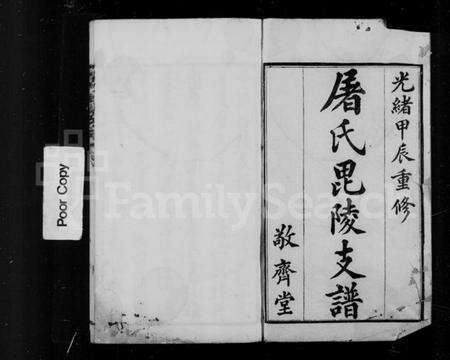 光緒甲辰重修
屠氏毘陵支譜
敬齊堂
Poor Copy
FamilySearch